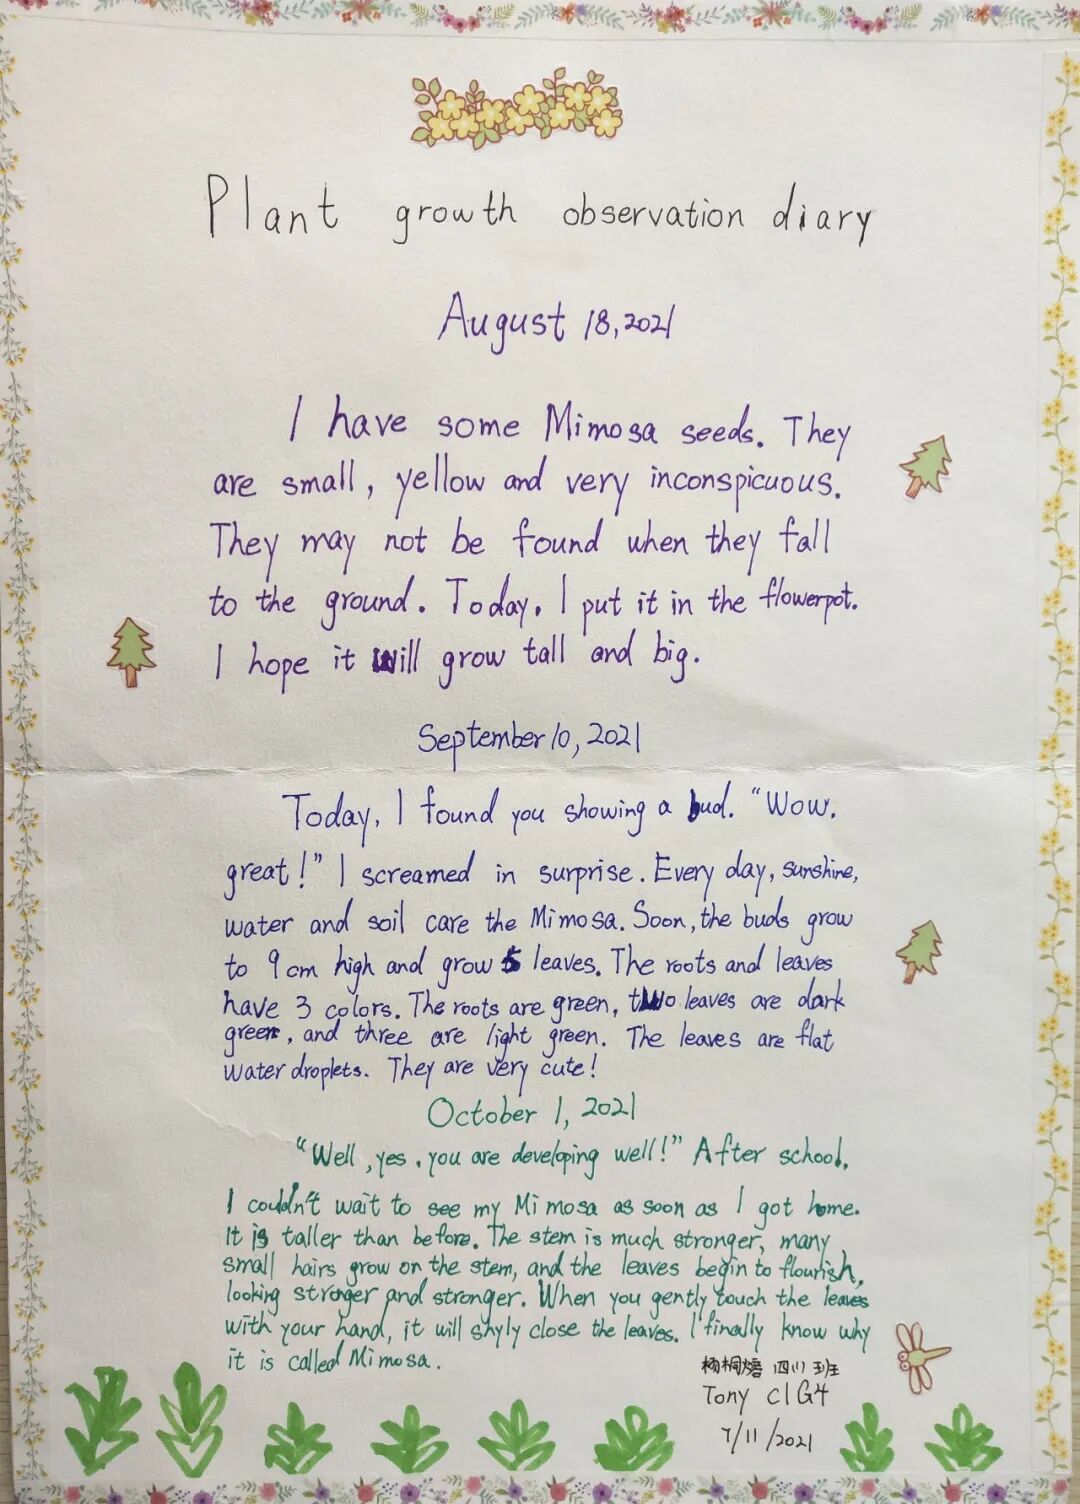 Plant growth observation diary
August 18,2021
I have some Mimosa seeds. They
are small, yellow and very inconspicuous.
They may not be found when they fall
to the ground. Today. I put it in the flowerpot.
I hope it will grow tall and big.
September 10, 2021
Today, I found you showing a bud. "Wow.
great!" I screamed in surprise. Every day, sunshine,
water and soil care the Mimosa. Soon, the buds grow
to 9cm high and grow 5 leaves. The roots and leaves
have 3 colors. The roots are green, two leaves are dark
green, and three are light green. The leaves are flat
water droplets. They are very cute!
October 1, 2021
"Well, yes, you are developing well!" After school,
I couldn't wait to see my Mimosa as soon as I got home.
It is taller than before. The stem is much stronger, many
small hairs grow on the stem, and the leaves begin to flourish,
looking stronger and stronger. When you gently touch the leaves
with your hand, it will shyly close the leaves. I finally know why
it is called Mimosa.
四川班
Tony C1G4
7/11/2021